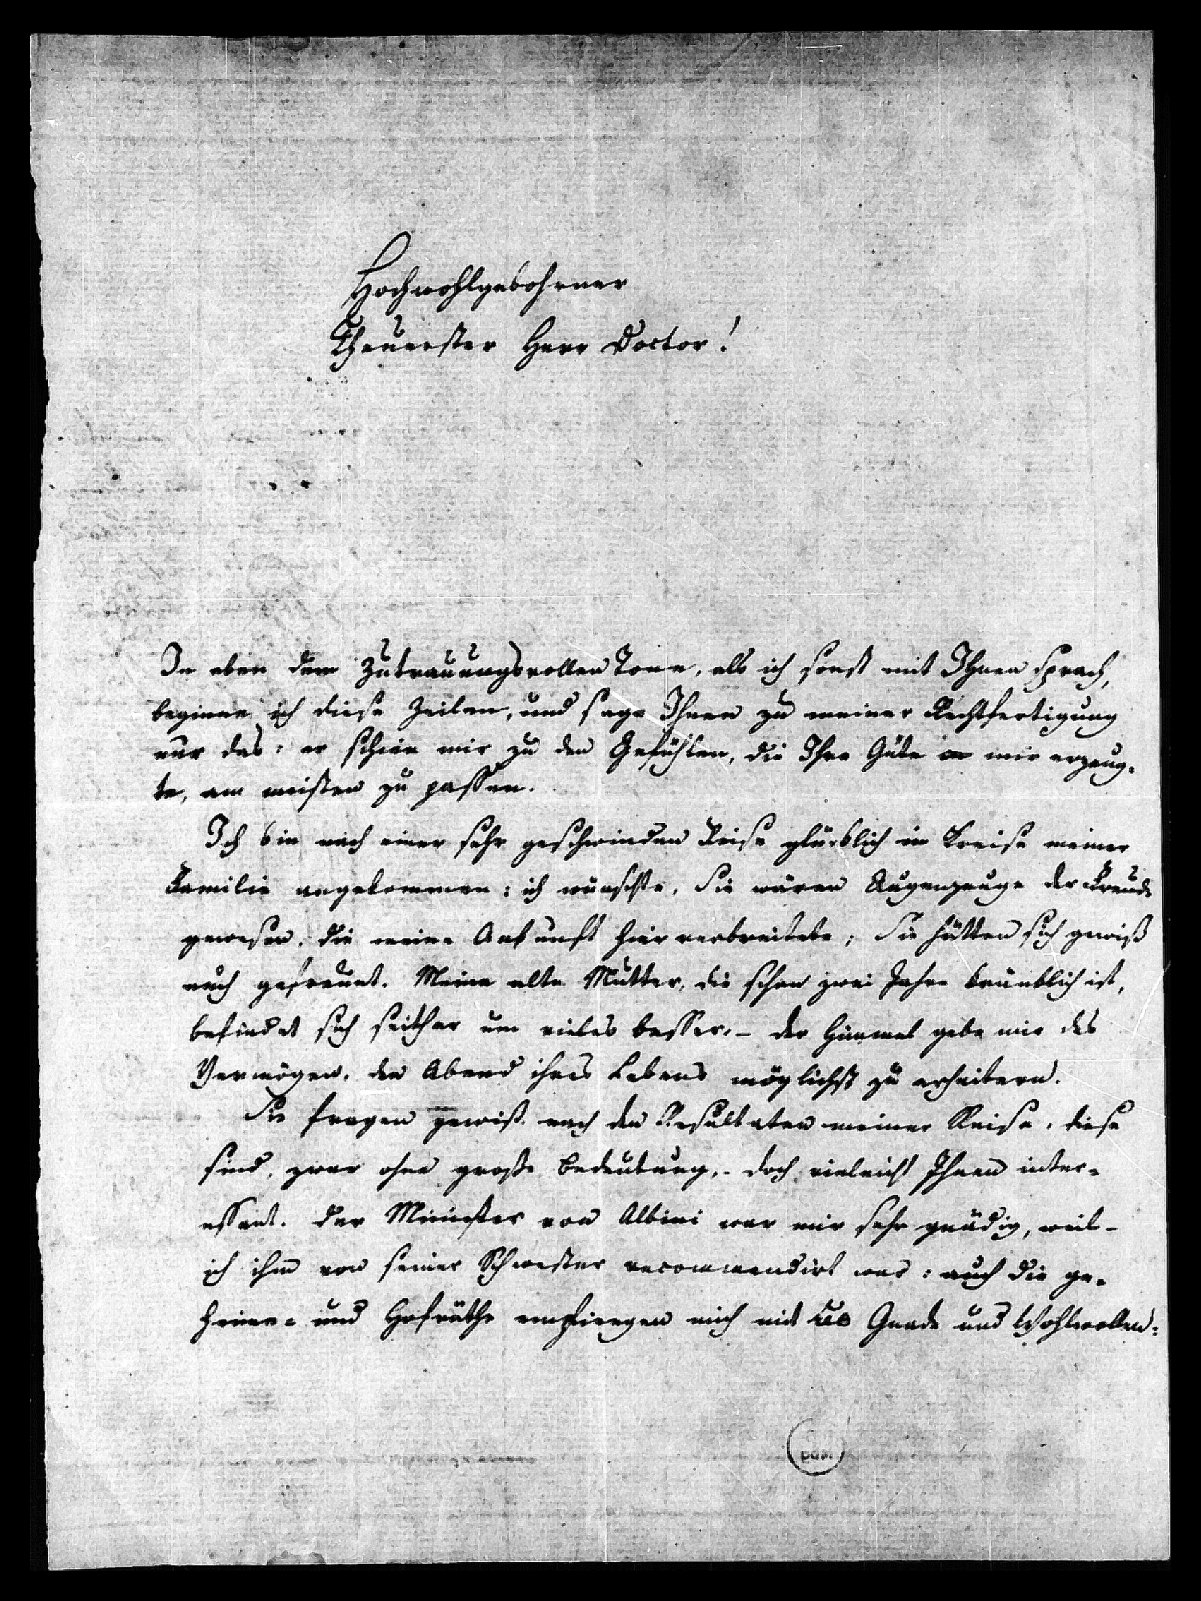 Hochwohlgebohrner
Theuerster Herr Doctor!
In eben dem Zutrauungsvollen Tone, als ich sonst mit Ihnen sprach,
beginne ich diese Zeilen, und sage Ihnen zu meiner Rechtfertigung
nur das: er schien mir zu den Gefühlen, die Ihre Güte in mir erzeug-
te, am meisten zu passen.
Ich bin nach einer sehr geschwinden Reise glücklich im Kreise meiner
Familie angekommen: ich wünschte, Sie wären Augenzeuge der Freude
gewesen, die meine Ankunft hier verbreitete; Sie hätten sich gewiß
auch gefreuet. Meine alte Mutter, die schon zwei Jahre kränklich ist,
befindet sich seither um vieles besser. – der Himmel gebe mir das
Vermögen, den Abend ihres Lebens möglichst zu erheitern.
Sie fragen gewiß nach den Resultaten meiner Reise, diese
sind, zwar ohne große Bedeutung, doch vieleicht Ihnen inter-
essant. Der Minister von Albini war mir sehr gnädig, weil
ich ihm von seiner Schwester recommendirt war: auch die ge-
heimen- und Hofräthe empfiengen mich mit Gnade und Wohlwollen:
pos.